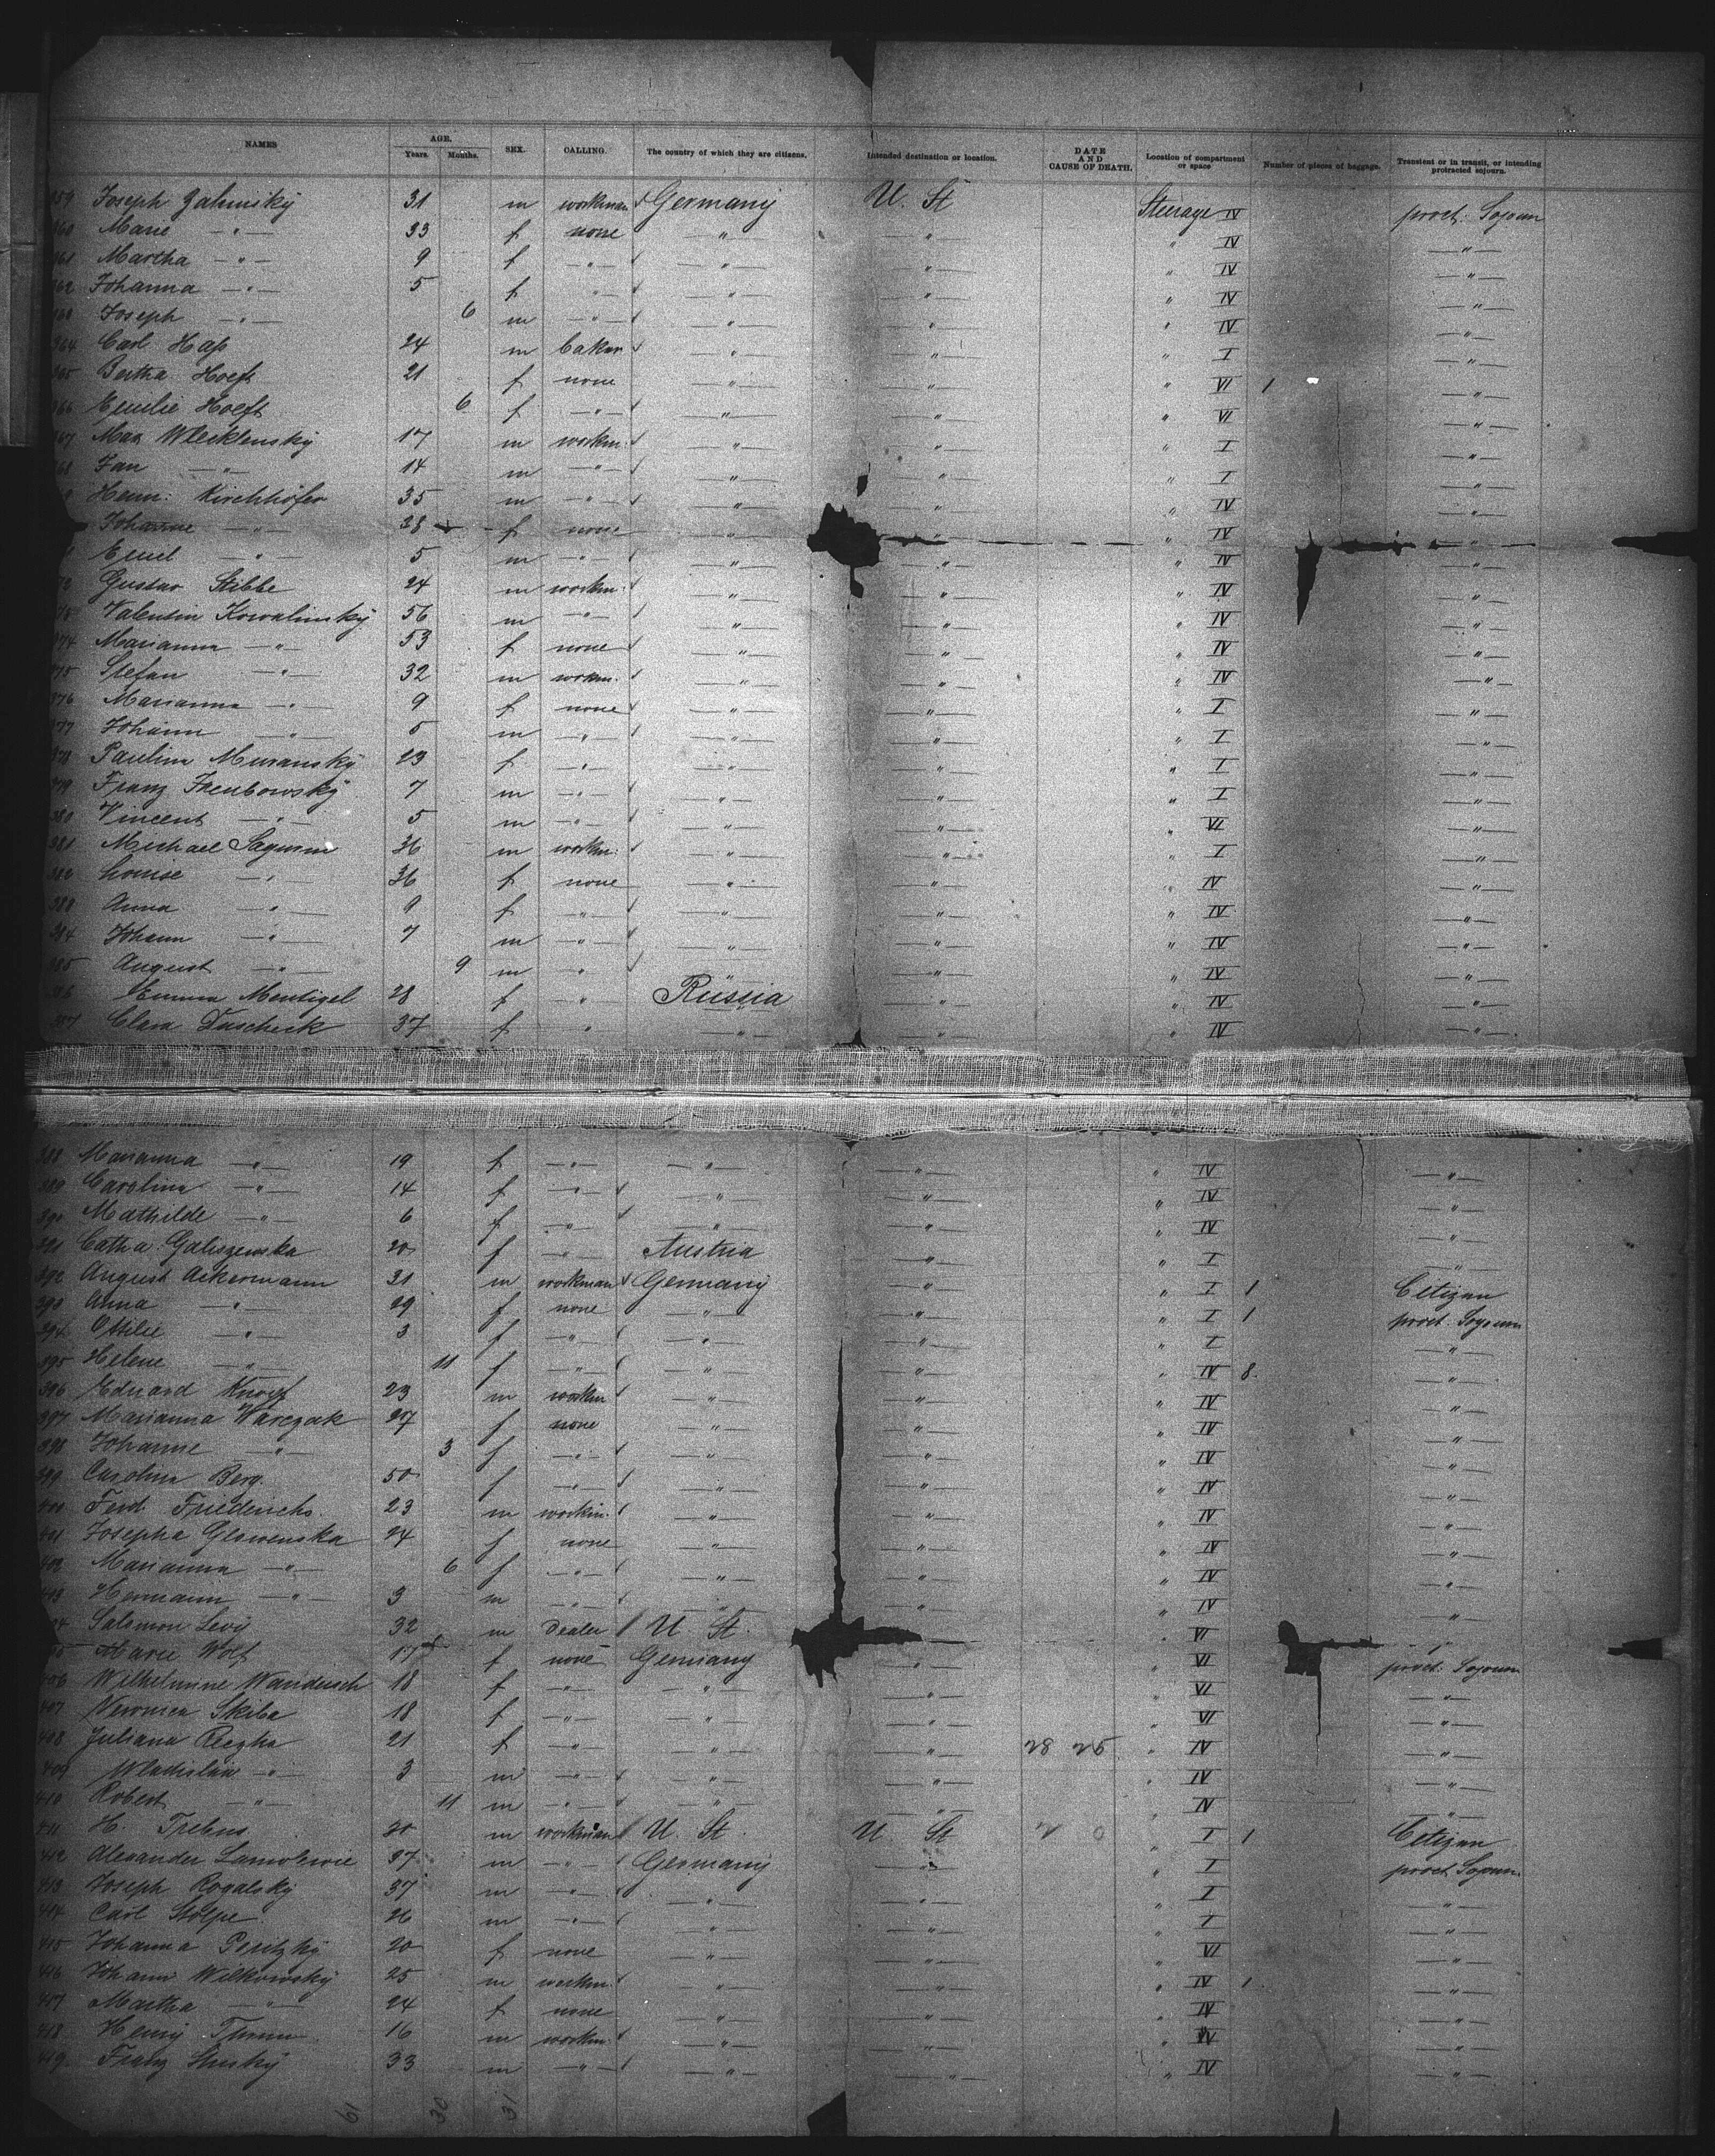 NAMES AGE. Years. Months. SEX. CALLING. The country of which they are citizens. Intended destination or location. DATE AND CAUSE OF DEATH. Location of compartment or space Number of pieces of baggage. Transient or in transit, or intending protracted sojourn.
359 Joseph 31 m workman Germany U. St Steerage IV proct. Sojourn
360 Marie —"— 33 f none —"— —"— " IV —"—
361 Martha —"— 9 f —"— —"— —"— " IV —"—
362 Johanna —"— 5 f —"— —"— —"— " IV —"—
363 Joseph —"— 6 m —"— —"— —"— " IV —"—
364 Carl 24 m baker —"— —"— " I —"—
365 Bertha Hoeft 21 f none —"— —"— " VI 1 —"—
366 Emilie Hoeft 6 f —"— —"— —"— " VI —"—
367 Max 17 m workm: —"— —"— " I —"—
368 Jan —"— 14 m —"— —"— —"— " I —"—
Herm: Kirchhöfer 35 m —"— —"— —"— " IV —"—
Johanne —"— 28 f none —"— —"— " IV —"—
Emil —"— 5 m —"— —"— —"— " IV —"—
Gustav Stibbe 24 m workm: —"— —"— " IV —"—
Valentin Kowalinsky 56 m —"— —"— —"— " IV —"—
374 Marianna —"— 53 f none —"— —"— " IV —"—
375 Stefan —"— 32 m workm. —"— —"— " IV —"—
376 Marianna —"— 9 f none —"— —"— " I —"—
377 Johann —"— 5 m —"— —"— —"— " I —"—
378 Paulina Muransky 23 f —"— —"— —"— " I —"—
379 Franz 7 m —"— —"— —"— " I —"—
380 Vincent —"— 5 m —"— —"— —"— " VI —"—
381 Michael 36 m workm: —"— —"— " I —"—
382 Louise —"— 36 f none —"— —"— " IV —"—
383 Anna —"— 9 f —"— —"— —"— " IV —"—
384 Johann —"— 7 m —"— —"— —"— " IV —"—
385 August —"— 9 m —"— —"— " IV —"—
386 Emma Mentigel 28 f " Russia —"— " IV —"—
387 Clara Duscheck 37 f " —"— —"— " IV —"—
388 Marianna —"— 19 f —"— —"— —"— " IV —"—
389 Carolina —"— 14 f —"— —"— —"— " IV —"—
390 Mathilde —"— 6 f —"— —"— —"— " IV —"—
391 Catha: Galiszewska 20 f —"— Austria —"— " I —"—
392 August Ackermann 31 m workman Germany —"— " I 1 Citizen
393 Anna —"— 29 f none —"— —"— " I 1 proct. Sojourn
394 Ottilie —"— 3 f —"— —"— —"— " I —"—
395 Helene —"— 11 f —"— —"— —"— " IV 8. —"—
396 Eduard Knopf 23 m workm —"— —"— " IV —"—
397 Marianna Warczak 27 f none —"— —"— " IV —"—
398 Johanne —"— 3 f —"— —"— —"— " IV —"—
399 Carolina Berg. 50 f —"— —"— —"— " IV —"—
400 Ferd. Friederichs 23 m workm: —"— —"— " IV —"—
401 Josepha Glowenska 24 f none —"— —"— " IV —"—
402 Marianna —"— 6 f —"— —"— —"— " IV —"—
403 Hermann —"— 3 m —"— —"— —"— " IV —"—
Salomon Levy 32 m Dealer U. St. " VI
Marie Wolf 17 f none Germany —"— " VI proct. Sojourn
406 Wilhelmine Wandersch 18 f —"— —"— —"— " VI —"—
407 Veronica Skiba 18 f —"— —"— —"— " VI —"—
408 Juliana 21 f —"— —"— —"— 28 25 " IV —"—
409 Wladislaw —"— 3 m —"— —"— —"— " IV —"—
410 Robert —"— 11 m —"— —"— —"— " IV —"—
411 H. 30 m workman U. St U. St " I 1 Citizen
412 Alexander 37 m —"— Germany —"— " I proct. Sojourn.
413 Joseph Rogalsky 37 m —"— —"— —"— " I —"—
414 Carl Stolpe 26 m —"— —"— —"— " I —"—
415 Johanna 20 f none —"— —"— " VI —"—
416 Johann Wilkowsky 25 m workm: —"— —"— " IV 1 —"—
417 Martha —"— 24 f none —"— —"— " IV —"—
418 Henry 16 m workm: —"— —"— " IV —"—
419. Franz 33 m —"— —"— —"— " IV —"—
61 30 31